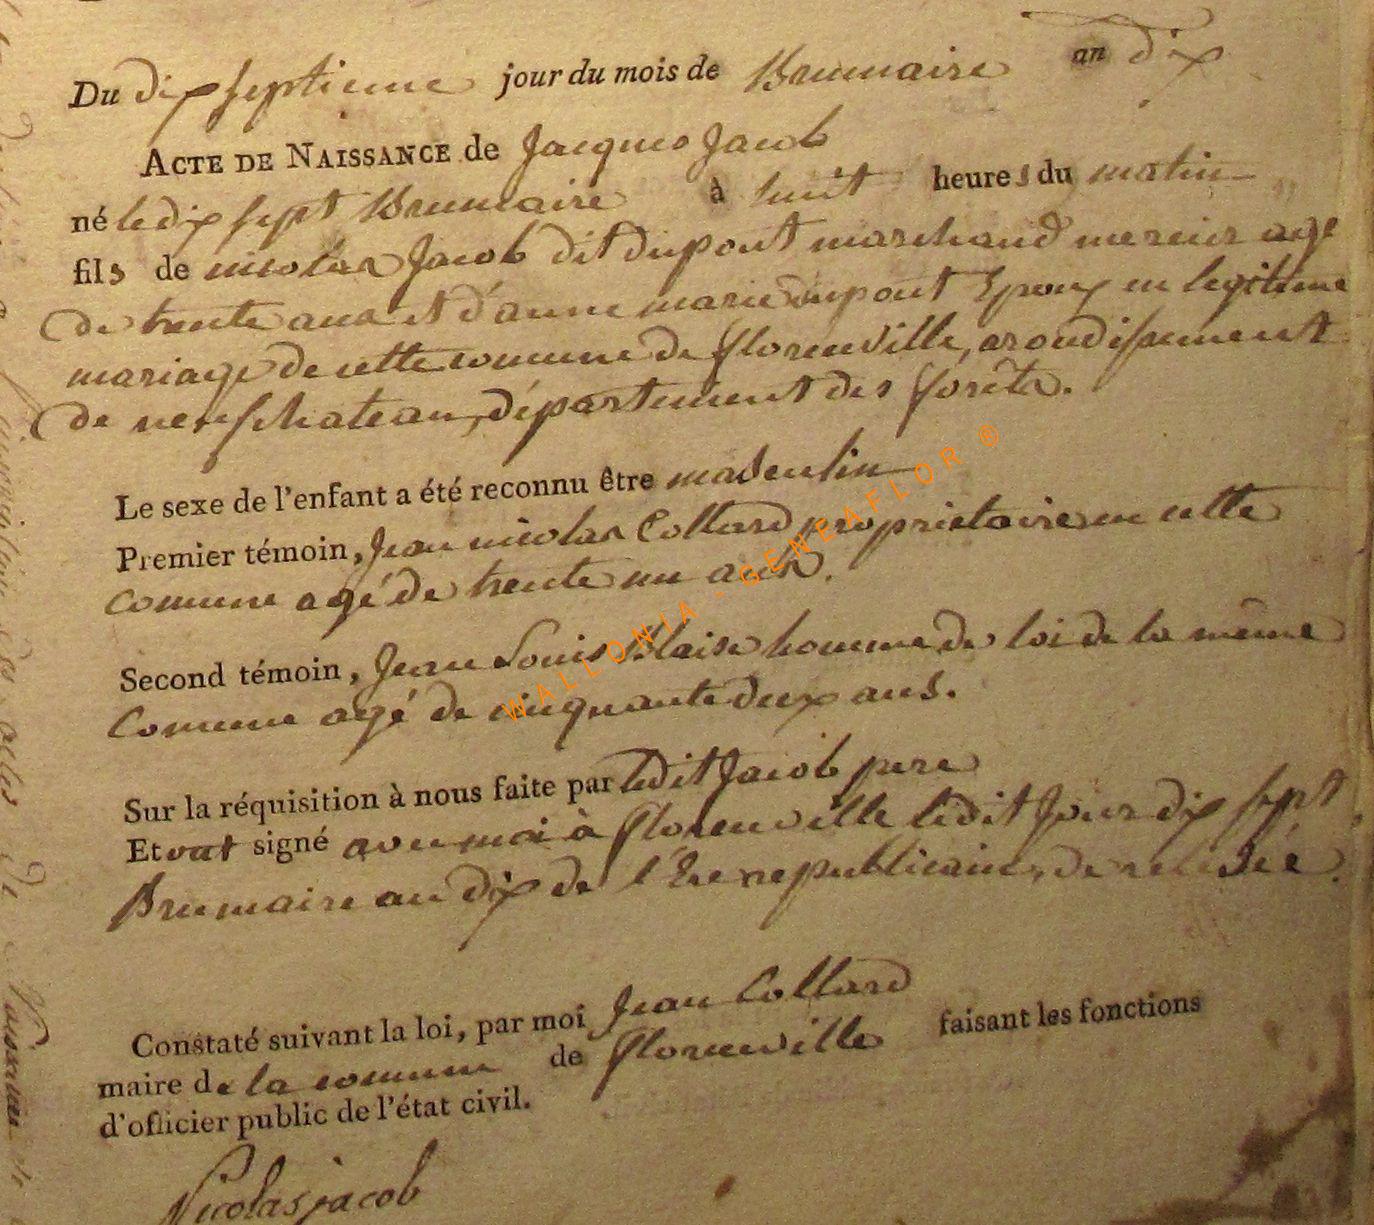 Du dix septieme jour du mois de Brumaire an dix
ACTE DE NAISSANCE de Jacques Jacob
né le dix sept Brumaire à huit heures du matin
fils de nicolas Jacob dit dupont marchand mercier agé
de trente ans et d'anne marie dupont Epoux en legitime
mariage de cette comune de florenville, arondissement
de neufchateau, département des forêts.
Le sexe de l'enfant a été reconnu être masculin
Premier témoin, Jean nicolas Collard proprietaire en cette
comune agé de trente un ans.
Second témoin, Jean Louis Blaise homme de loi de la même
Comune agé de cinquante deux ans.
Sur la réquisition à nous faite par ledit Jacob pere
Et ont signé avec moi à florenville ledit Jour dix sept
Brumaire an dix de l'Ere republicaine
Constaté suivant la loi, par moi Jean Collard
maire de la comune de florenville faisant les fonctions
d'officier public de l'état civil.
Nicolas jacob
WALLONIA - GENEAFLOR ®